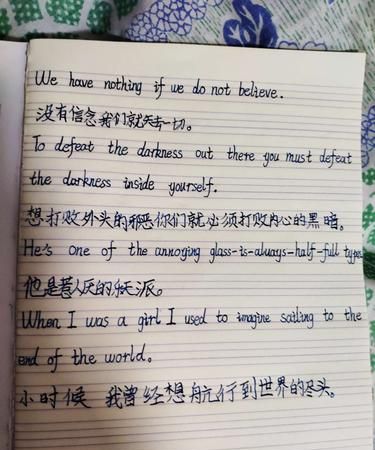 We have nothing if we do not believe.
没有信念我们就失去一切。
To defeat the darkness out there you must defeat
the darkness inside yourself.
想打败外头的邪恶你们就必须打败内心的黑暗。
He's one of the annoying glass-is-always-half-full types
他是惹人厌的乐天派。
When I was a girl I used to imagine sailing to the
end of the world.
小时候 我曾经想航行到世界的尽头。